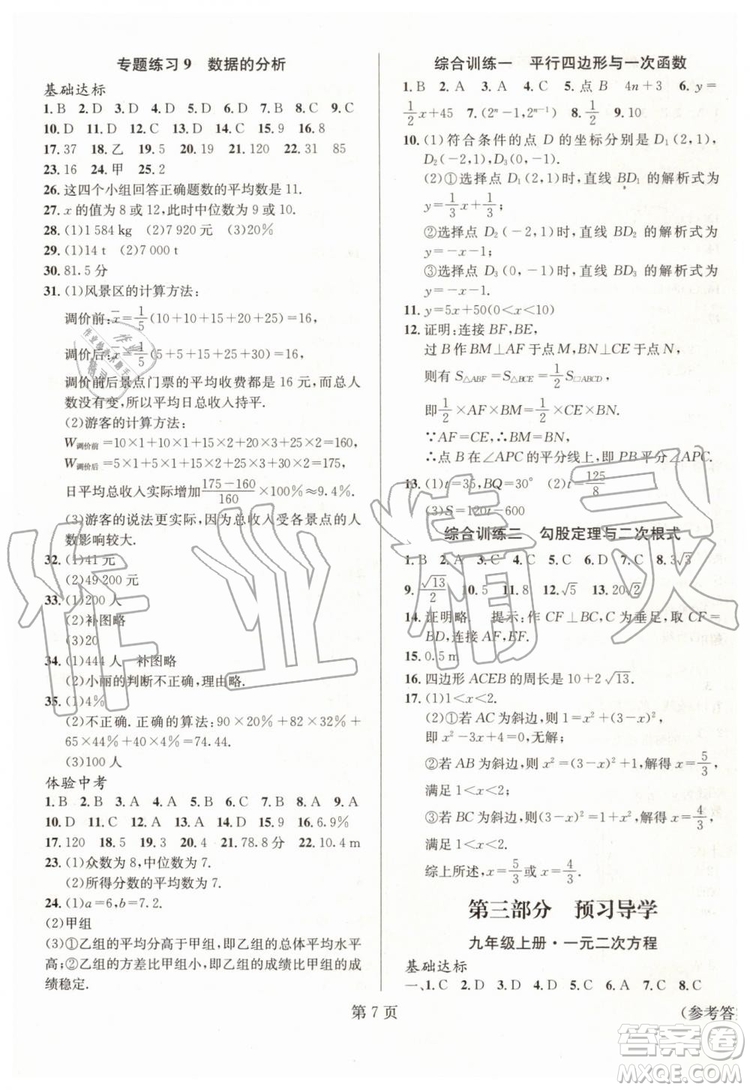 专题练习9 数据的分析
基础达标
1. B 2. D 3. D 4. D 5. A 6. D 7. B 8. C 9. C
10. D 11. D 12. A 13. B 14. B 15. 9 16. 8
17. 37 18. 乙 19. 5 20. 21 21. 32 22. 31 85
23. 16 24. 甲 25. 2
26. 这四个小组回答正确题数的平均数是11.
27. x的值为8或12,此时中位数为9.
28. (1)1 584 kg (2)7 920元 (3)20%
29. (1)14 t (2)7 000 t
30. 81.5分
31. (1)风景区的计算方法:
调价前:x̄=1/5(10+10+15+20+25)=16,
调价后:x̄=1/5(5+5+15+25+30)=16,
调价前后景点门票的平均收费都是16元,而且总人
数不变,故平均日总收入持平.
(2)游客的计算方法:
W调价前=10×1+10×1+15×2+20×3+25×2=160
W调价后=5×1+5×1+15×2+25×3+30×2=175
日平均总收入实际增加(175-160)/160×100%≈9.4%.
(3)游客的说法更实际,因为总收入与各景点的人数
影响较大.
32. (1)41元
(2)49 200元
33. (1)200人
(2)补图略
(3)20
34. (1)444人 补图略
(2)小丽的判断不正确.理由略.
35. (1)4%
(2)不正确.正确的算法:90%×20%+82%×32%+
65%×44%+100%×4%
(3)100人
体验中考
1. B 2. B 3. A 4. C 5. A 6. A 7. C 8. C 9. B
10. D 11. D 12. B 13. D 14. B 15. 9 16. 6.9%
17. 120 18. 15 19. 5 20. 9 21. 88.5分 22. 10.4 m
23. (1)众数为7,中位数为7.
(2)所得分数的平均数为7.
24. (1)a=6,b=7.2.
(2)甲组
(3)①乙组的平均分高于甲组,即乙组的总体平均水平
高;②乙组的方差比甲组小,即乙组的成绩比甲组的成
绩稳定.
综合训练一 平行四边形与一次函数
1. B 2. A 3. C 4. C 5. 点B 4n-3 6. y=
1/2x+45 7. (2ⁿ-1,2ⁿ⁻¹) 8. 1/2 9. 10
10. (1)符合条件的点D的坐标分别是D₁(2,1),
D₂(-2,1),D₃(0,-1).
(2)①选择点D₁(2,1)时,直线BD₁的解析式为
y=1/3x+1/3;
②选择点D₂(-2,1)时,直线BD₂的解析式为
y=-x-1;
③选择点D₃(0,-1)时,直线BD₃的解析式为
y=-x-1.
11. y=5x+50(0<x<10)
12. 证明:连接BF,BE,
过B作BM⊥AF于M,BN⊥EC于N,
则有S△ABF=S△BCE=1/2S□ABCD,
即1/2×AF×BM=1/2×CE×BN.
∵AF=CE,∴BM=BN.
∴点B在∠APC的平分线上,即PB平分∠APC.
13. (1)t=35,BQ=30° (2)t=125/8
(3)S=120t-600
综合训练二 勾股定理与二次根式
1. B 2. C 3. A 4. C 5. C 6. A 7. B 8. 3√3
9. √13/2 10. 4 11. 5 12. √5 13. 20√2
14. 证明略. 提示:作CF⊥BC,C为垂足,取CF=
BD,连接AF、EF.
15. 0.5 m
16. 四边形ACEB的周长是10+2√13.
17. (1)1<x<2.
(2)①若AC为斜边,则1=x²+(3-x)²,
即x²-3x+4=0,无解.
②若AB为斜边,则x²=(3-x)²+1,解得x=5/3,
满足1<x<2.
③若BC为斜边,则(3-x)²=1+x²,解得x=4/3,
满足1<x<2.
综上所述,x=5/3或x=4/3.
第三部分 预习导学
九年级上册·一元二次方程
基础达标
一、1. C 2. D 3. D 4. D 5. A 6. D 7. B 8. C
第7页
(参考答
作业精灵
答案圈
MXQE.COM